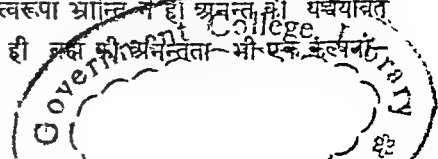 त्वरूपा भ्रान्ति ने ही अनन्त की
ही ब्रह्म की अनन्तता भी एक कल्पना
Government College Library